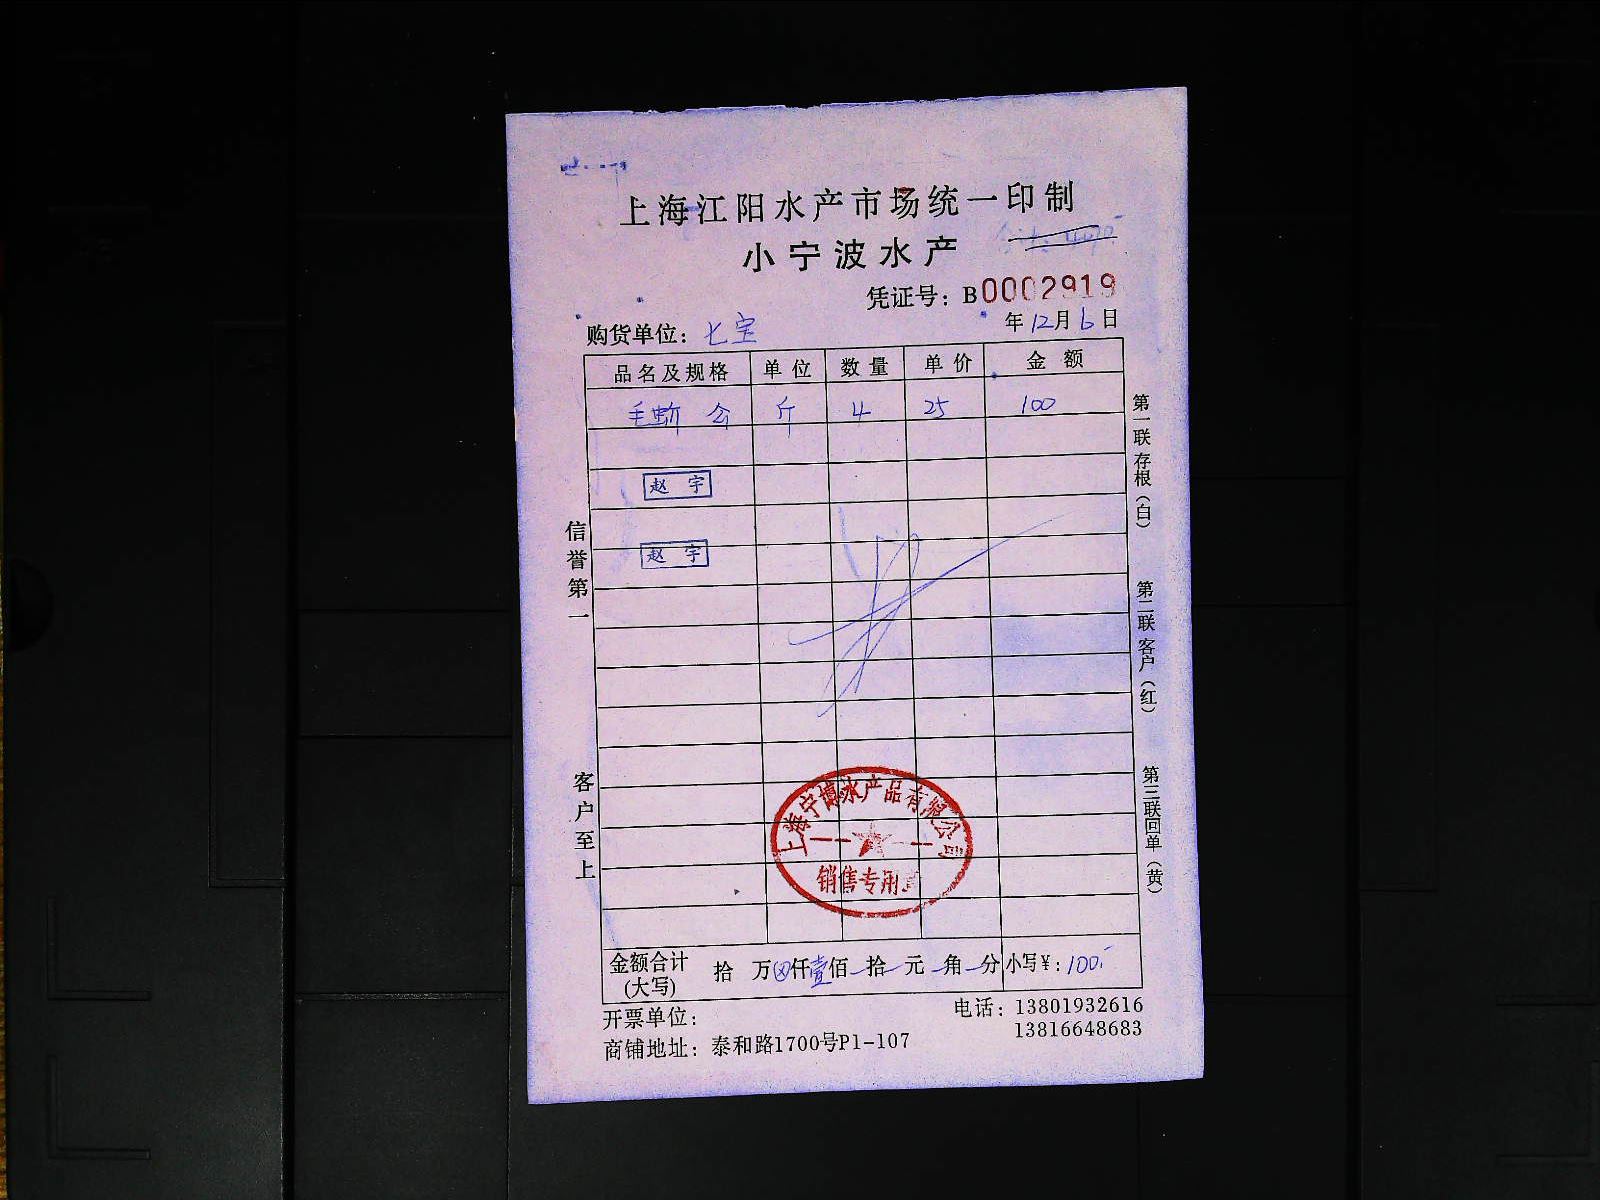 上海江阳水产市场统一印制
小宁波水产
凭证号：B0002919
购货单位：七宝 年12月6日
品名及规格 单位 数量 单价 金额
毛蚶 斤 4 25 100
赵宇
赵宇
信誉第一
客户至上
第一联存根（白）
第二联客户（红）
第三联回单（黄）
上海宁博水产品有限公司
销售专用章
金额合计（大写） 拾 万⊗仟壹佰-拾-元-角-分 小写￥：100.-
开票单位： 电话：13801932616
13816648683
商铺地址：泰和路1700号P1-107